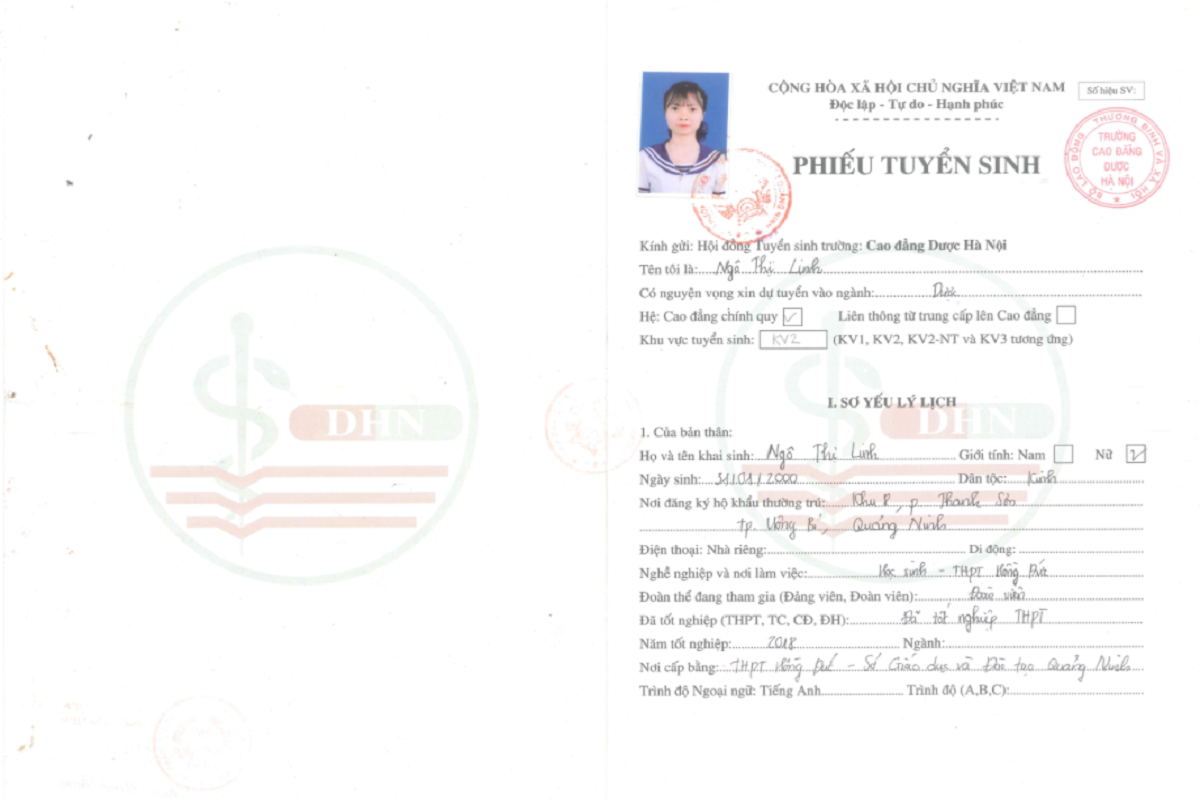 CỘNG HÒA XÃ HỘI CHỦ NGHĨA VIỆT NAM
Độc lập - Tự do - Hạnh phúc
Số hiệu SV:
BỘ LAO ĐỘNG THƯƠNG BINH VÀ XÃ HỘI
TRƯỜNG
CAO ĐẲNG
DƯỢC
HÀ NỘI
PHIẾU TUYỂN SINH
Kính gửi: Hội đồng Tuyển sinh trường: Cao đẳng Dược Hà Nội
Tên tôi là: Ngô Thị Linh
Có nguyện vọng xin dự tuyển vào ngành: Dược
Hệ: Cao đẳng chính quy Liên thông từ trung cấp lên Cao đẳng
Khu vực tuyển sinh: KV2 (KV1, KV2, KV2-NT và KV3 tương ứng)
DHN
DHN
I. SƠ YẾU LÝ LỊCH
1. Của bản thân:
Họ và tên khai sinh: Ngô Thị Linh Giới tính: Nam Nữ
Ngày sinh: 31/01/2000 Dân tộc: Kinh
Nơi đăng ký hộ khẩu thường trú: Khu 8, p. Thanh Sơn
tp. Uông Bí, Quảng Ninh
Điện thoại: Nhà riêng: Di động:
Nghề nghiệp và nơi làm việc: Học sinh - THPT Hồng Đức
Đoàn thể đang tham gia (Đảng viên, Đoàn viên): Đoàn viên
Đã tốt nghiệp (THPT, TC, CĐ, ĐH): Đã tốt nghiệp THPT
Năm tốt nghiệp: 2018 Ngành:
Nơi cấp bằng: THPT Hồng Đức - Sở Giáo dục và Đào tạo Quảng Ninh
Trình độ Ngoại ngữ: Tiếng Anh Trình độ (A,B,C):